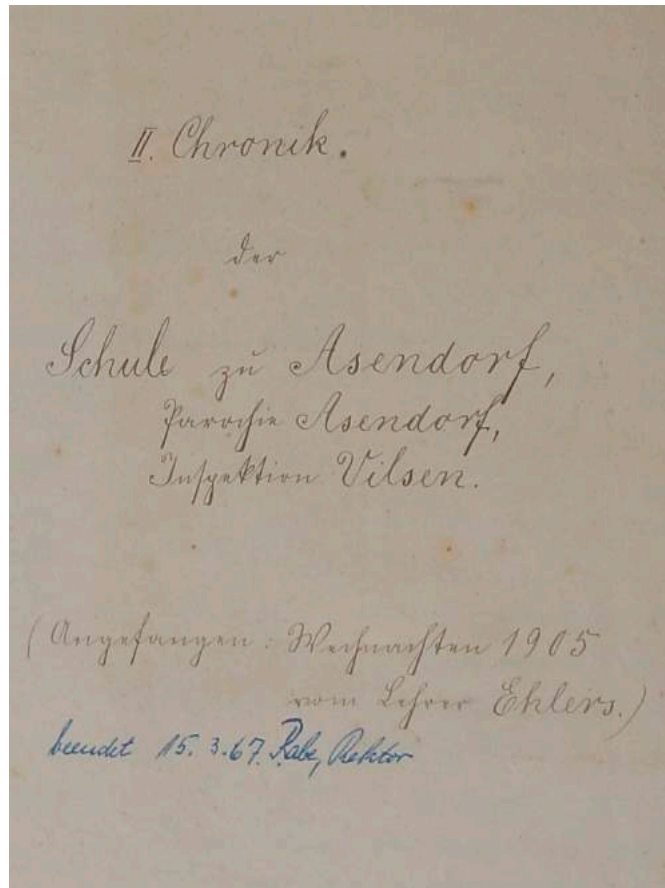 II. Chronik.
der
Schule zu Asendorf,
Parochie Asendorf,
Inspektion Vilsen.
(Angefangen: Weihnachten 1905
vom Lehrer Ehlers.)
beendet 15.3.67. Rabe, Rektor